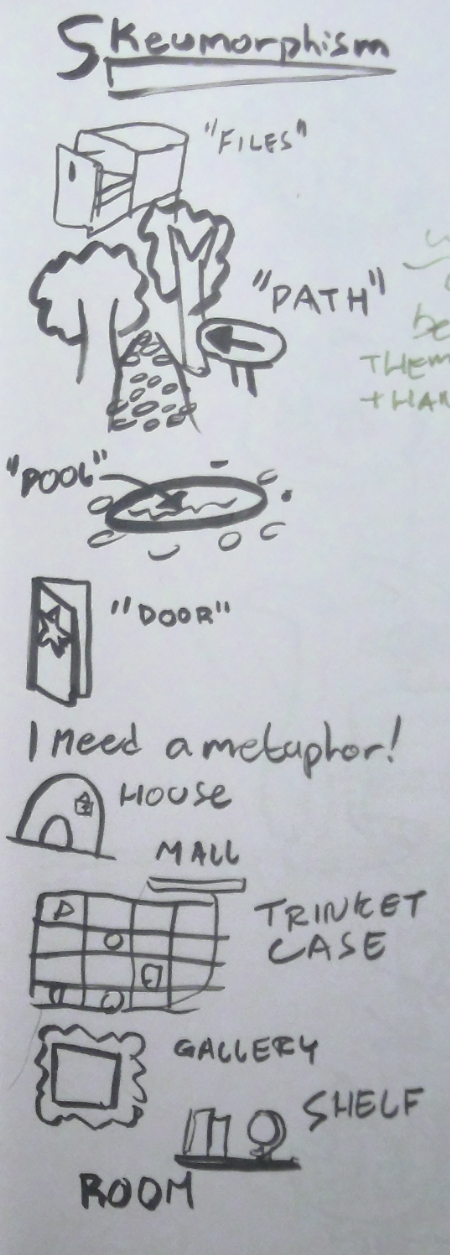 Skeuomorphism
"FILES"
"PATH"
be
THEM
THAN
"POOL"
"DOOR"
I need a metaphor!
HOUSE
MALL
TRINKET
CASE
GALLERY
SHELF
ROOM